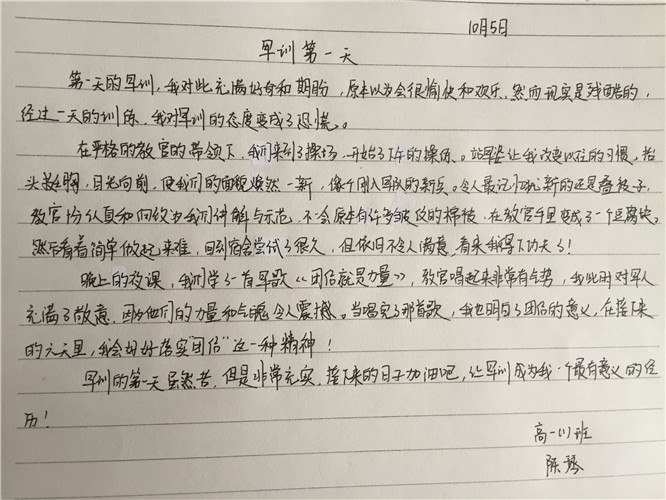 10月5日
军训第一天
第一天的军训，我对此充满好奇和期盼，原本以为会很愉快和欢乐，然而现实是残酷的，
经过一天的训练，我对军训的态度变成了恐慌。
在严格的教官的带领下，我们来到了操场，开始了下午的操练。站军姿让我改变以往的习惯，抬
头挺胸，目光向前，使我们的面貌焕然一新，像个刚入军队的新兵。令人最记忆犹新的还是叠被子，
教官份认真和仔细为我们讲解与示范，不一会原本有许多皱纹的棉被，在教官手里变成了一个豆腐块。
然而看着简单做起来难，回到宿舍尝试了很久，但依旧不令人满意，看来我得下功夫了！
晚上的夜课，我们学了一首军歌《团结就是力量》，教官唱起来非常有气势，我此时对军人
充满了敬意，因为他们的力量和气魄令人震撼。当唱完了那首歌，我也明白了团结的意义，在接下来
的六天里，我会好好落实“团结”这一种精神！
军训的第一天虽然苦，但是非常充实，接下来的日子加油吧，让军训成为我一个最有意义的经
历！
高一(1)班
陈琴